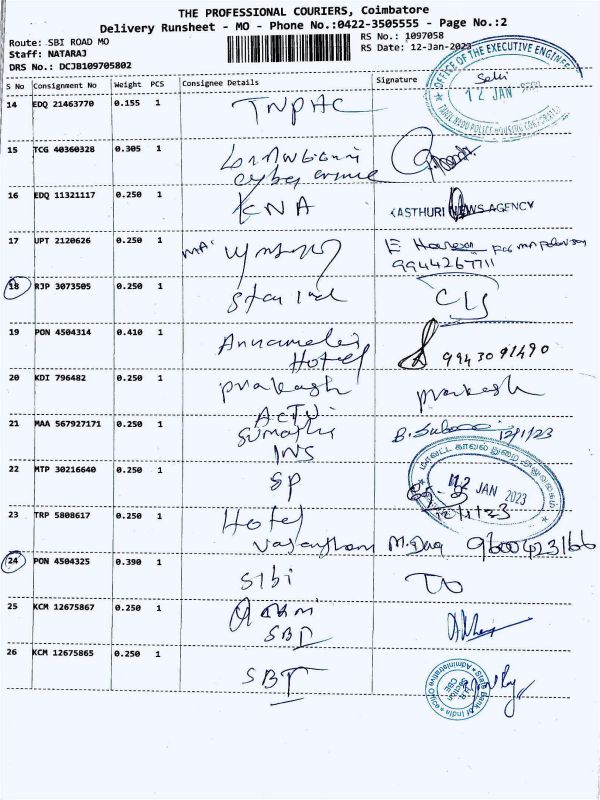 THE PROFESSIONAL COURIERS, Coimbatore
Delivery Runsheet - MO - Phone No.:0422-3505555 - Page No.:2
Route: SBI ROAD MO
Staff: NATARAJ
DRS No.: DCJB109705802
RS No.: 1097058
RS Date: 12-Jan-2023
OFFICE OF THE EXECUTIVE ENGINEER
12 JAN
TAMIL NADU POLICE HOUSING CORPORATION
S No Consignment No Weight PCS Consignee Details Signature
14 EDQ 21463770 0.155 1 TNPHC
15 TCG 40360328 0.305 1
cyber crime
16 EDQ 11321117 0.250 1 KNA KASTHURI NEWS AGENCY
17 UPT 2120626 0.250 1
9944267711
18 RJP 3073505 0.250 1 Star Ind
19 PON 4504314 0.410 1 Annamalai
Hotel 9943091490
20 KDI 796482 0.250 1 Prakash Prakash
21 MAA 567927171 0.250 1
Sumathi 12/1/23
INS
மாவட்ட காவல் துறை அலுவலகம்
22 MTP 30216640 0.250 1 SP 12 JAN 2023
12/1/23
23 TRP 5808617 0.250 1 Hotel
9600423166
24 PON 4504325 0.390 1 Sibi
25 KCM 12675867 0.250 1
SBI
26 KCM 12675865 0.250 1 SBI
State Bank of India
Administrative Office
CBE